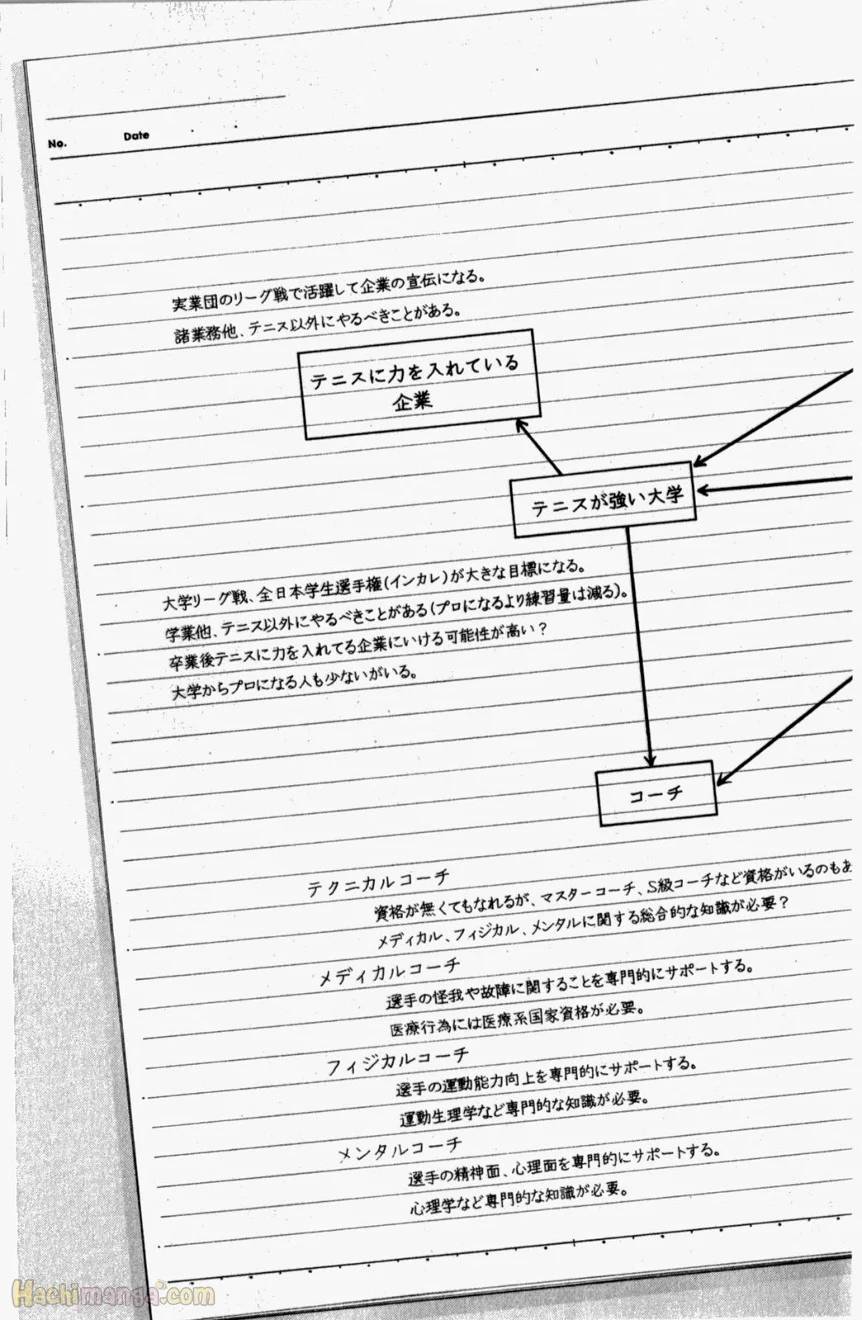 No. Date
実業団のリーグ戦で活躍して企業の宣伝になる。
諸業務他、テニス以外にやるべきことがある。
テニスに力を入れている
企業
テニスが強い大学
大学リーグ戦、全日本学生選手権(インカレ)が大きな目標になる。
学業他、テニス以外にやるべきことがある(プロになるより練習量は減る)。
卒業後テニスに力を入れてる企業にいける可能性が高い?
大学からプロになる人も少ないがいる。
コーチ
テクニカルコーチ
資格が無くてもなれるが、マスターコーチ、S級コーチなど資格がいるのもあ
メディカル、フィジカル、メンタルに関する総合的な知識が必要?
メディカルコーチ
選手の怪我や故障に関することを専門的にサポートする。
医療行為には医療系国家資格が必要。
フィジカルコーチ
選手の運動能力向上を専門的にサポートする。
運動生理学など専門的な知識が必要。
メンタルコーチ
選手の精神面、心理面を専門的にサポートする。
心理学など専門的な知識が必要。
Hachimanga.com